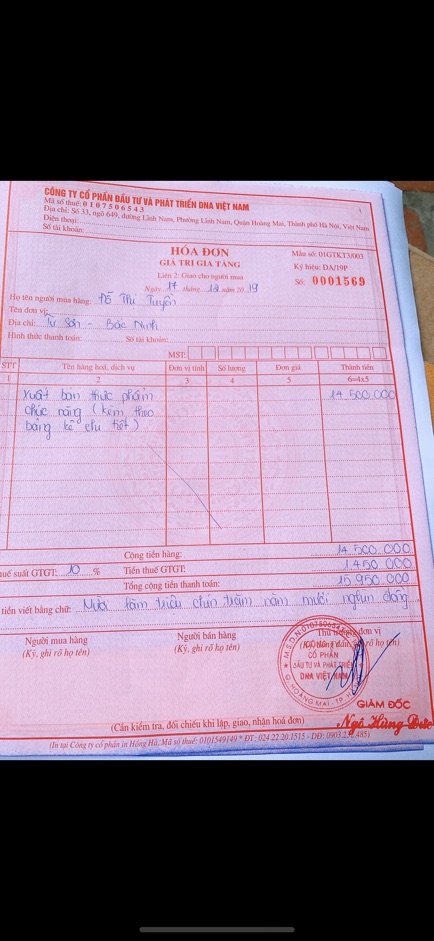 CÔNG TY CỔ PHẦN ĐẦU TƯ VÀ PHÁT TRIỂN DNA VIỆT NAM
Mã số thuế: 0 1 0 7 5 0 6 5 4 3
Địa chỉ: Số 33, ngõ 649, đường Lĩnh Nam, Phường Lĩnh Nam, Quận Hoàng Mai, Thành phố Hà Nội, Việt Nam
Điện thoại:
Số tài khoản:
HÓA ĐƠN
GIÁ TRỊ GIA TĂNG
Liên 2: Giao cho người mua
Ngày 17 tháng 12 năm 2019
Mẫu số: 01GTKT3/003
Ký hiệu: DA/19P
Số: 0001569
Họ tên người mua hàng: Đỗ Thị Tuyển
Tên đơn vị:
Địa chỉ: Từ Sơn - Bắc Ninh
Hình thức thanh toán: Số tài khoản:
MST:
STT Tên hàng hoá, dịch vụ Đơn vị tính Số lượng Đơn giá Thành tiền
1 2 3 4 5 6=4x5
Xuất bán thực phẩm 14.500.000
chức năng (kèm theo
bảng kê chi tiết)
Cộng tiền hàng: 14.500.000
huế suất GTGT: 10 % Tiền thuế GTGT: 1.450.000
Tổng cộng tiền thanh toán: 15.950.000
tiền viết bằng chữ: Mười lăm triệu chín trăm năm mươi nghìn đồng
Người mua hàng Người bán hàng Thủ trưởng đơn vị
(Ký, ghi rõ họ tên) (Ký, ghi rõ họ tên)
CÔNG TY
CỔ PHẦN
ĐẦU TƯ VÀ PHÁT TRIỂN
DNA VIỆT NAM
GIÁM ĐỐC
Ngô Hùng Đức
(Cần kiểm tra, đối chiếu khi lập, giao, nhận hoá đơn)
(In tại Công ty cổ phần in Hồng Hà. Mã số thuế: 0101549149 * ĐT: 024.22.20.1515 - DĐ: